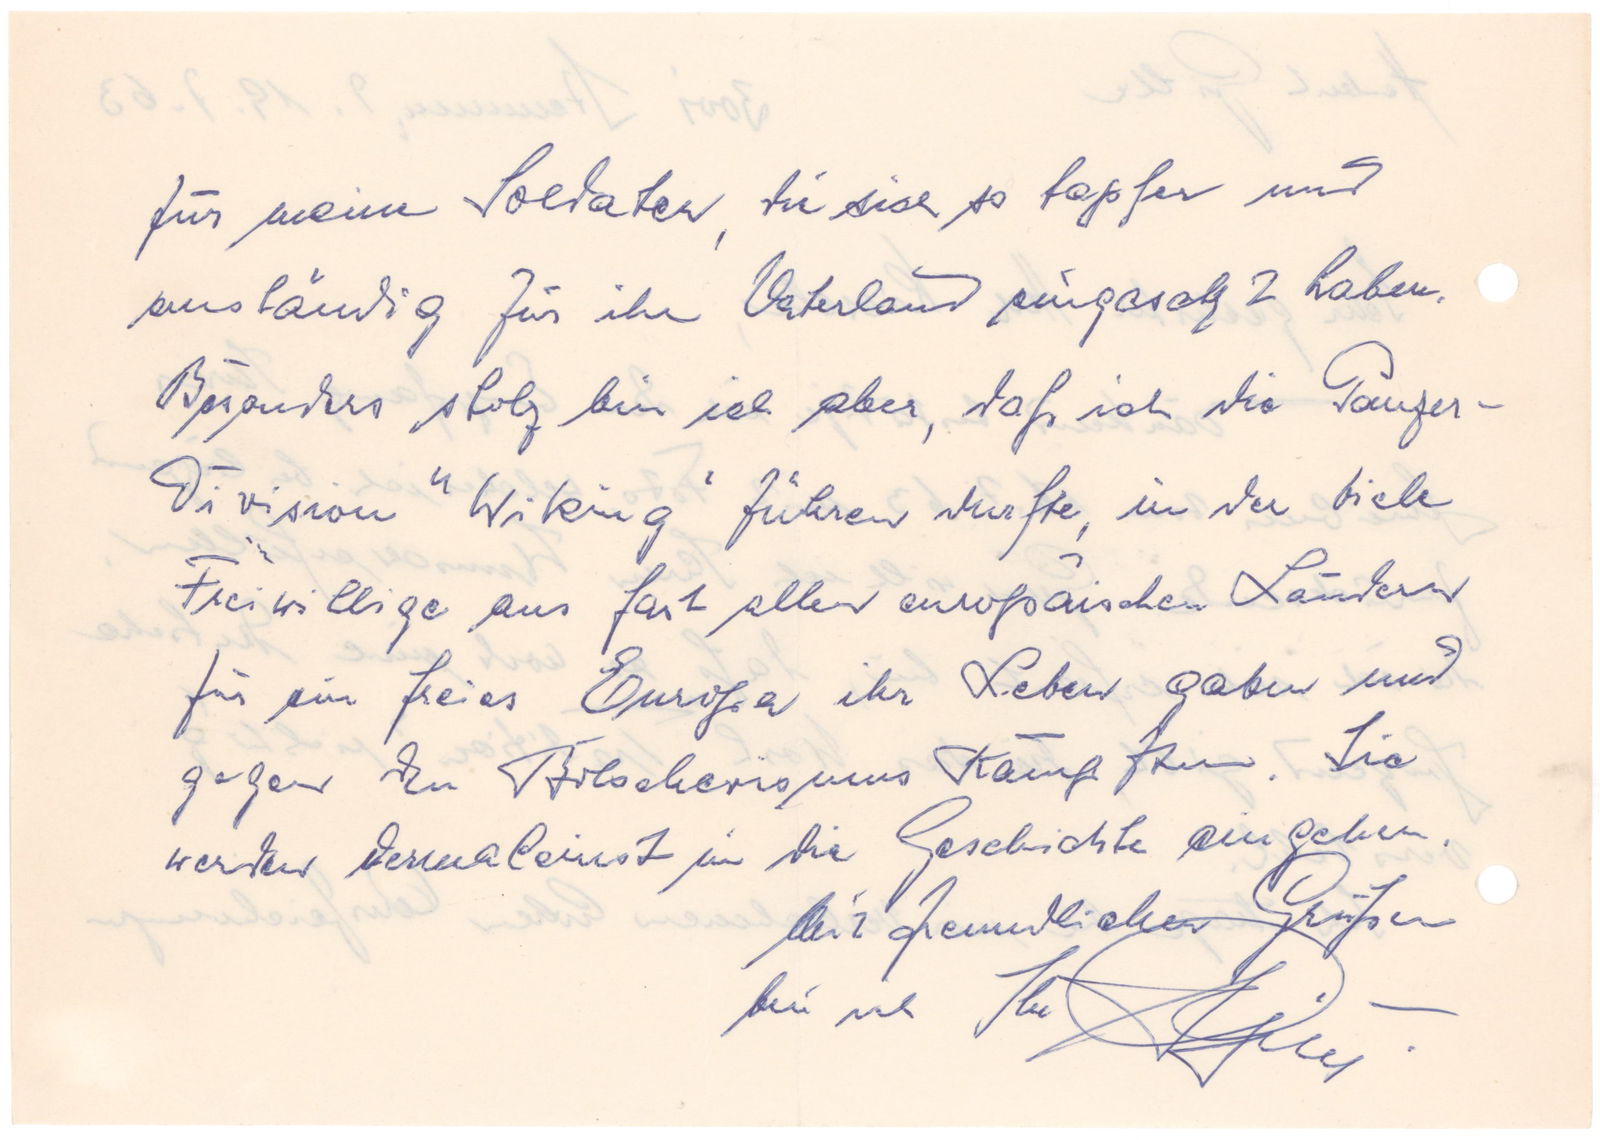 für meine Soldaten, die sich so tapfer und
anständig für ihr Vaterland eingesetzt haben.
Besonders stolz bin ich aber, daß ich die Panzer-
Division "Wiking" führen durfte, in der viele
Freiwillige aus fast allen europäischen Ländern
für ein freies Europa ihr Leben gaben und
gegen den Bolschewismus kämpften. Sie
werden dermaleinst in die Geschichte eingehen.
Mit freundlichen Grüßen
bin ich Ihr